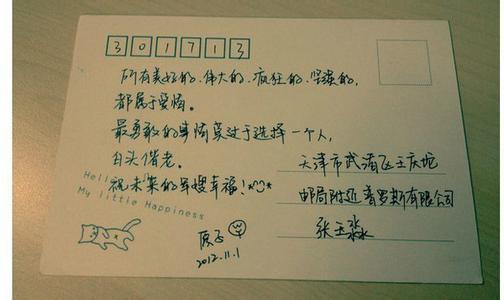 301713
所有美好的、伟大的、疯狂的、坚持的，
都属于爱情。
最勇敢的事情莫过于选择一个人，
白头偕老。
祝未来的军嫂幸福！
Hello
My little Happiness
天津市武清区王庆坨
邮局附近普罗斯有限公司
张玉淼
原子
2012.11.1